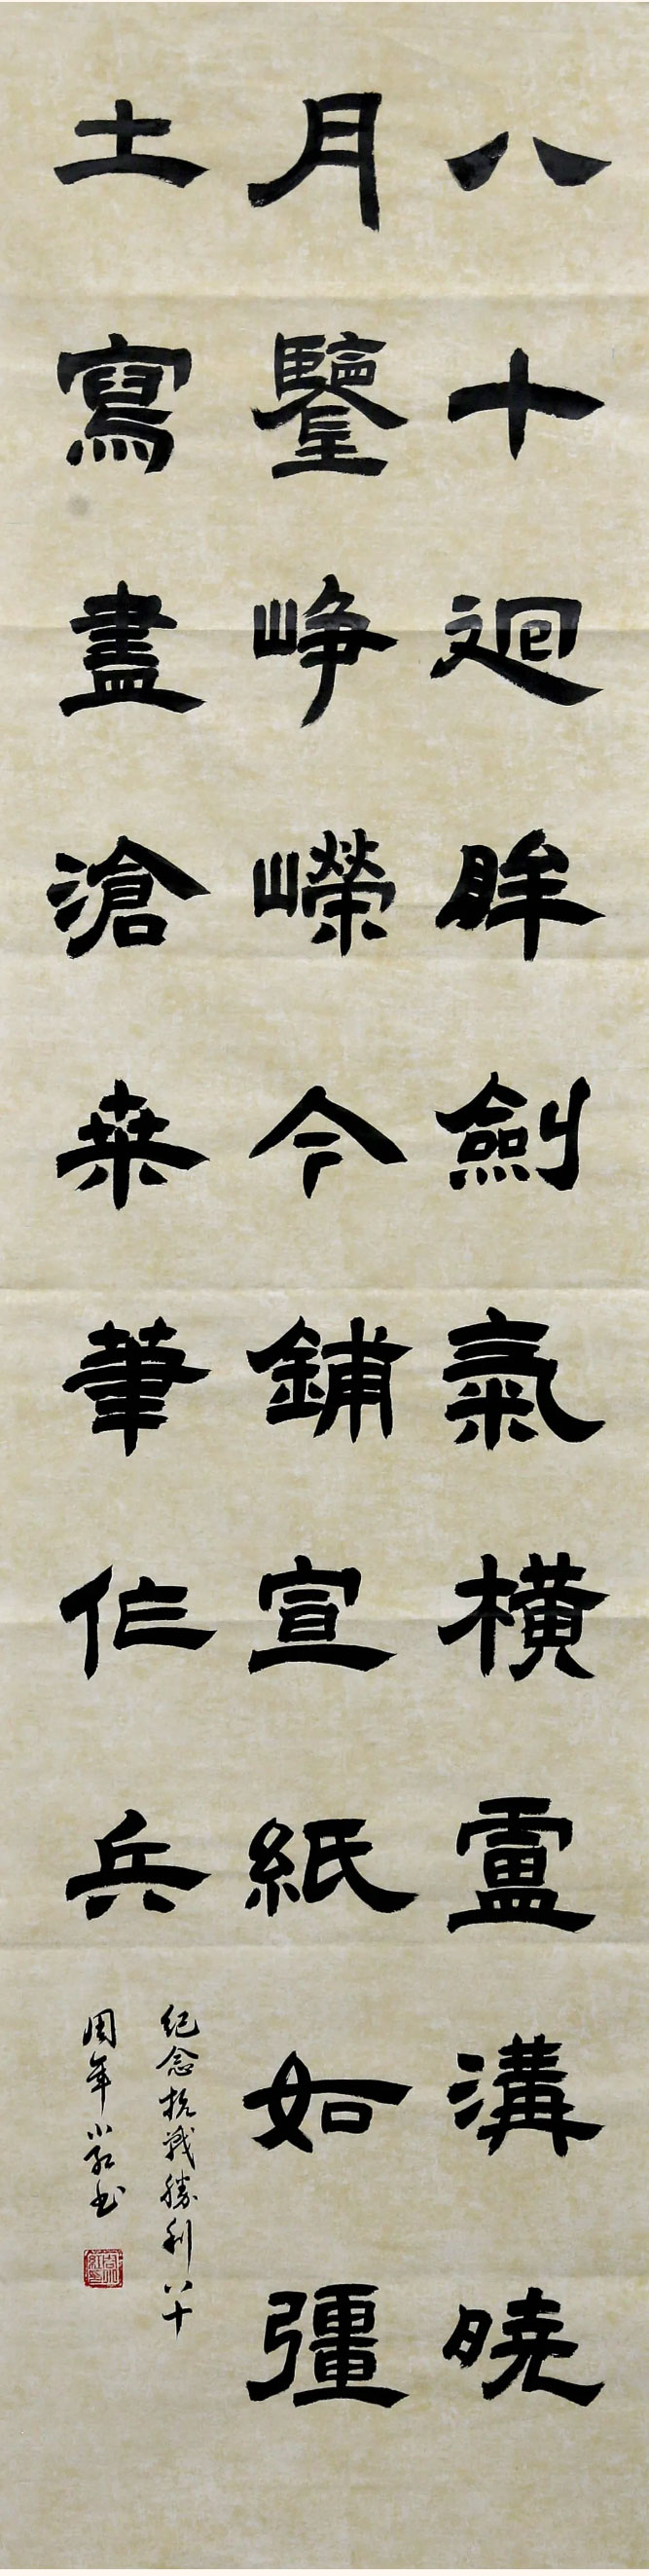 八十迴眸劍氣橫盧溝曉
月鑒崢嶸今鋪宣紙如彊
土寫盡滄桒筆作兵
纪念抗战勝利八十
周年小红书